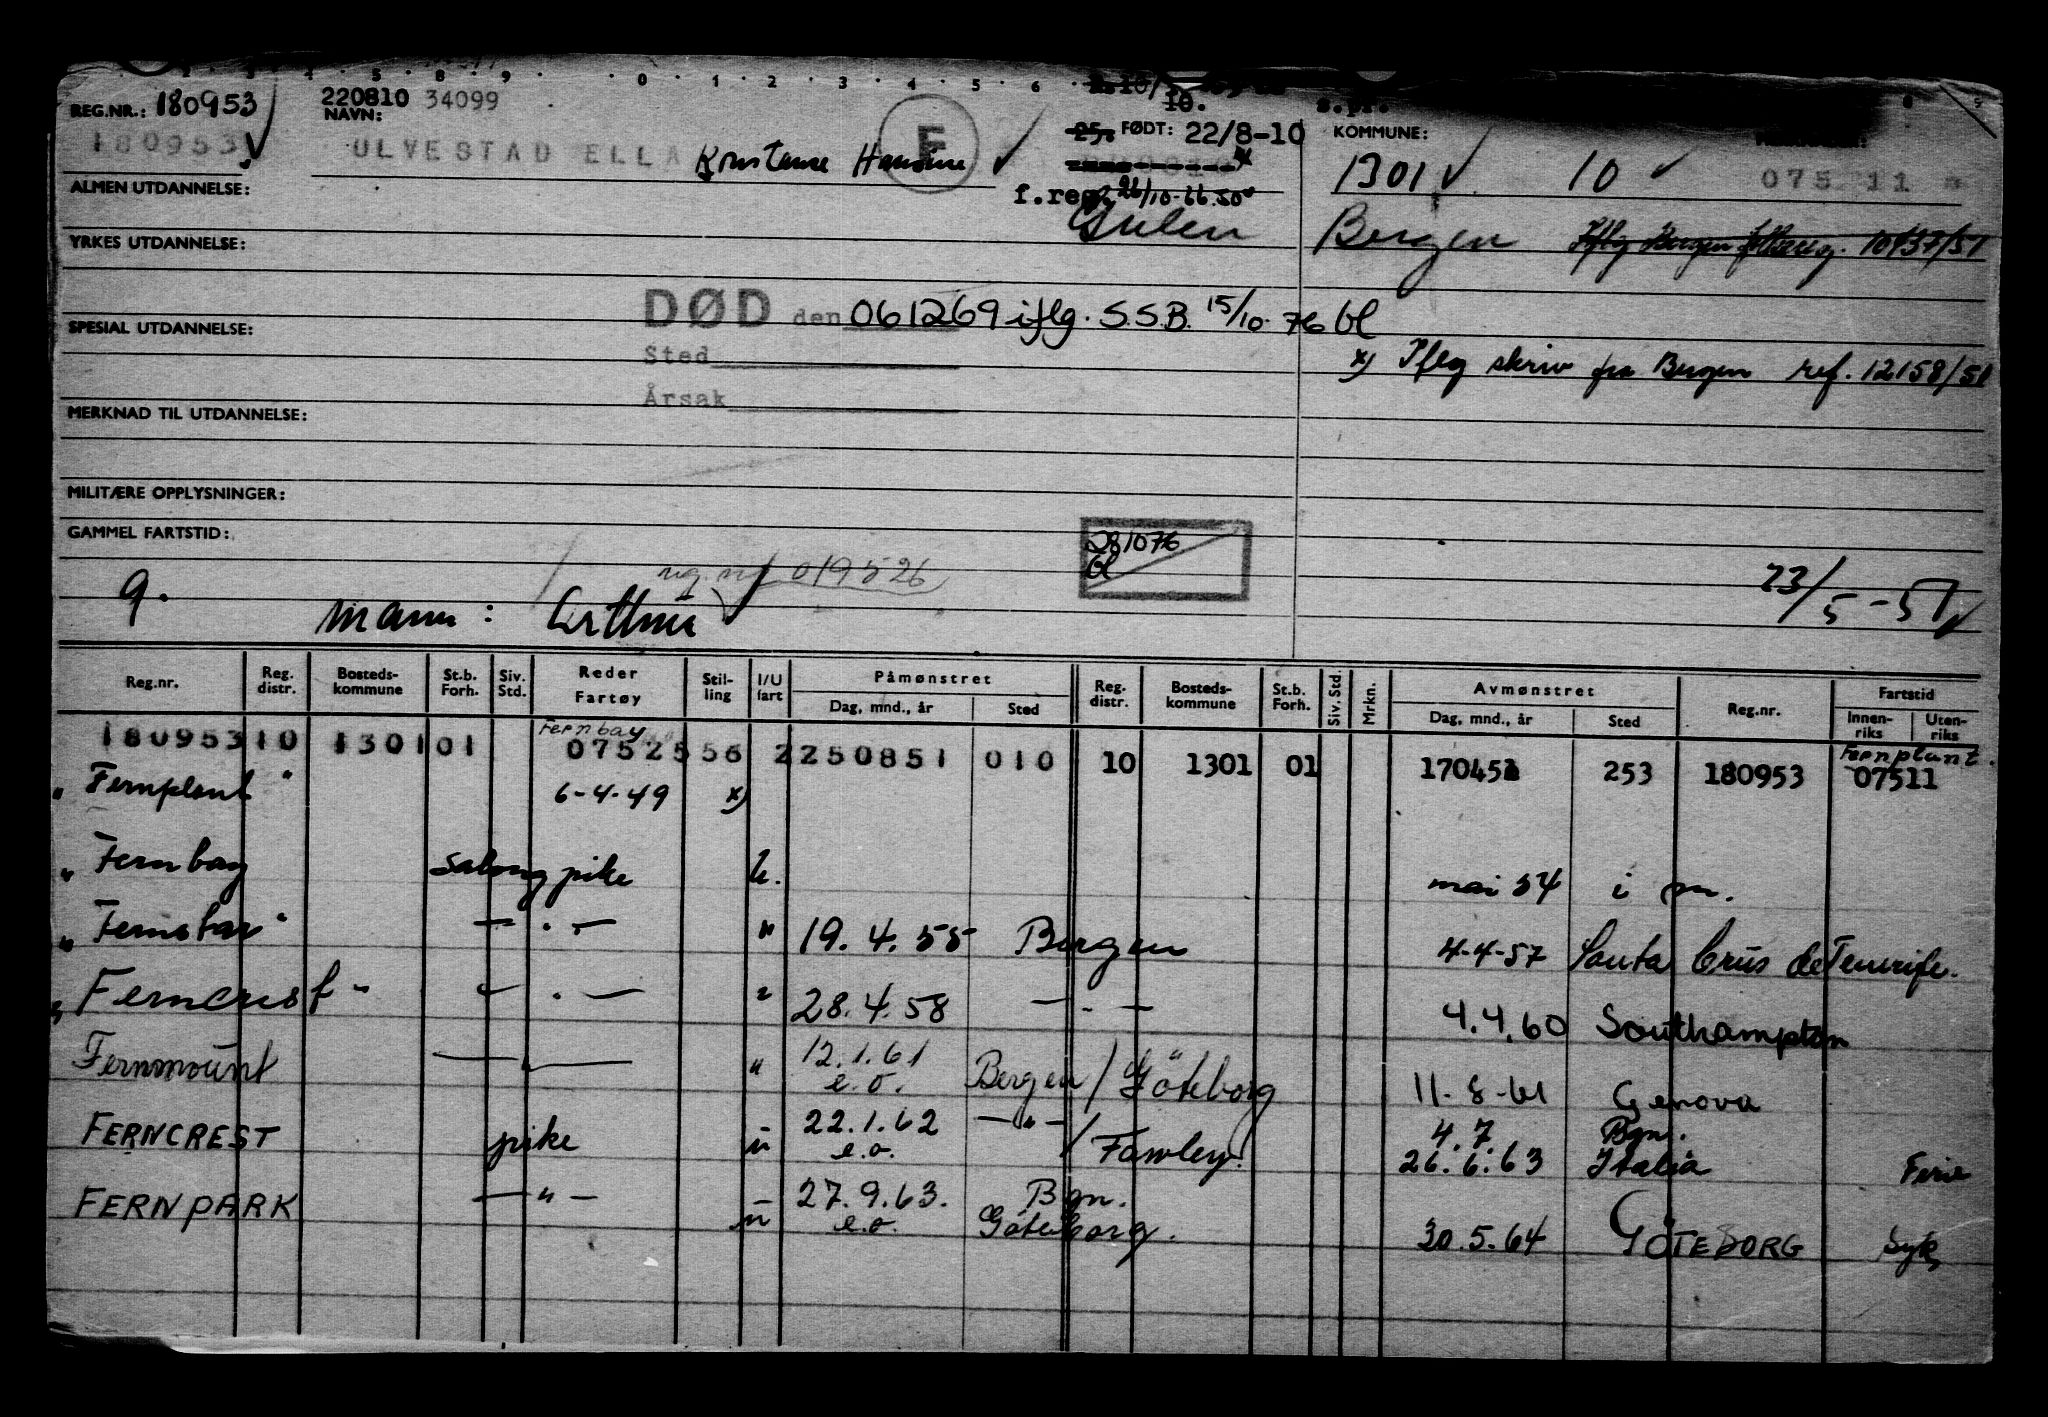 REG.NR.: 180953
220810 34099
NAVN:
180953
ULVESTAD ELLA Konstanse Hansine
F
10.
25. FØDT: 22/8-10
KOMMUNE:
1301 10
075 11
ALMEN UTDANNELSE:
f.reg. 26/10-66.50
Gulen
Bergen Iflg Bergen folkereg. 10437/51
YRKES UTDANNELSE:
DØD den 061269 iflg. S.S.B. 15/10-76 bl
SPESIAL UTDANNELSE:
Sted
x) Iflg skriv fra Bergen ref. 12158/51
Årsak
MERKNAD TIL UTDANNELSE:
MILITÆRE OPPLYSNINGER:
GAMMEL FARTSTID:
281076
bl
reg. nr. 019526
g.
mann: Arthur
23/5-51
Reg.nr. Reg. distr. Bosteds-kommune St.b. Forh. Siv. Std. Reder Fartøy Stil-ling I/U fart Påmønstret Dag, mnd., år Sted Reg. distr. Bosteds-kommune St.b. Forh. Siv. Std. Mrkn. Avmønstret Dag, mnd., år Sted Reg.nr. Fartstid Innen-riks Uten-riks
Fernbay
Fernplant.
180953 10 1301 01 0752556 2 250851 010 10 1301 01 170451 253 180953 07511
" Fernplant " 6-4-49 x)
" Fernbay salongpike U. mai 54 i pm.
" Fernstar " — . — " 19.4.55 Bergen 4-4-57 Santa Crus de Tenerife.
" Ferncrest " — . — " 28.4.58 — . — 4.4.60 Southampton
Fernmount — " — " 12.1.61 e.o. Bergen / Göteborg 11-8-61 Genova
FERNCREST pike u 22.1.62 e.o. — " — / Fawley. 4.7 Bgn.
26.6.63 Italia Ferie
FERNPARK — " — u 27.9.63. e.o. Bgn. Göteborg. 30.5.64 GÖTEBORG Syk